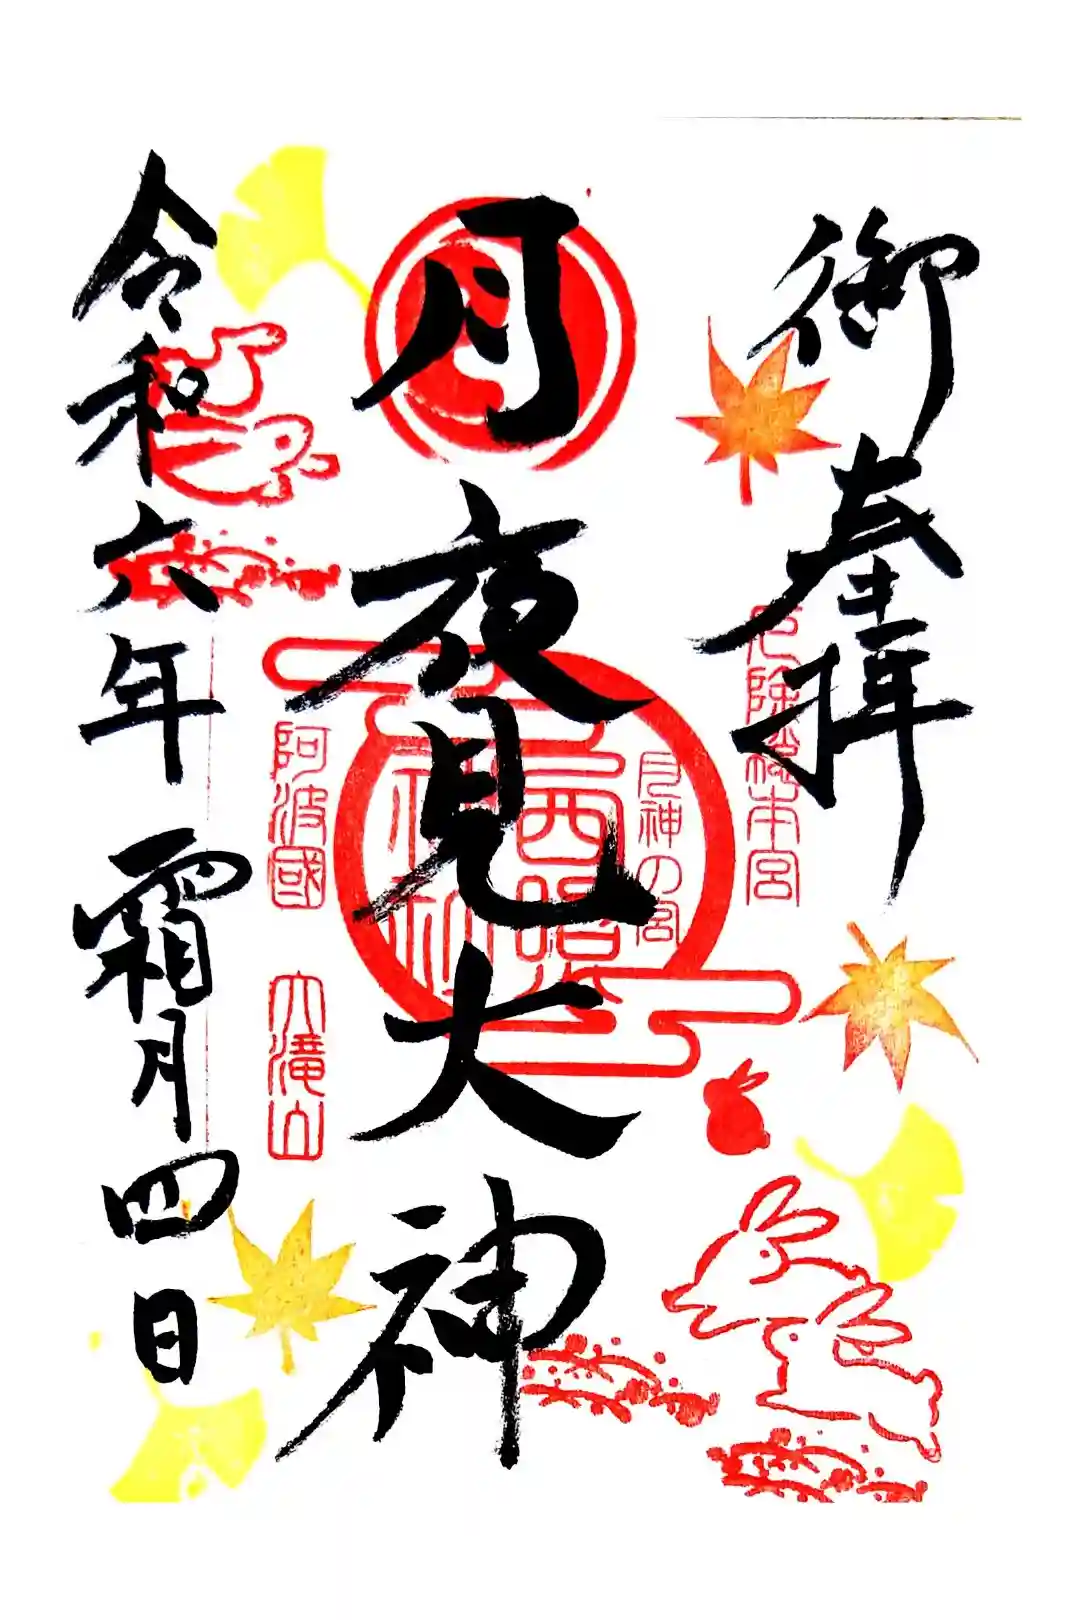 御奉拝
厄除總本宮
月神の宮
西照神社
月夜見大神
阿波國 大滝山
令和六年 霜月四日